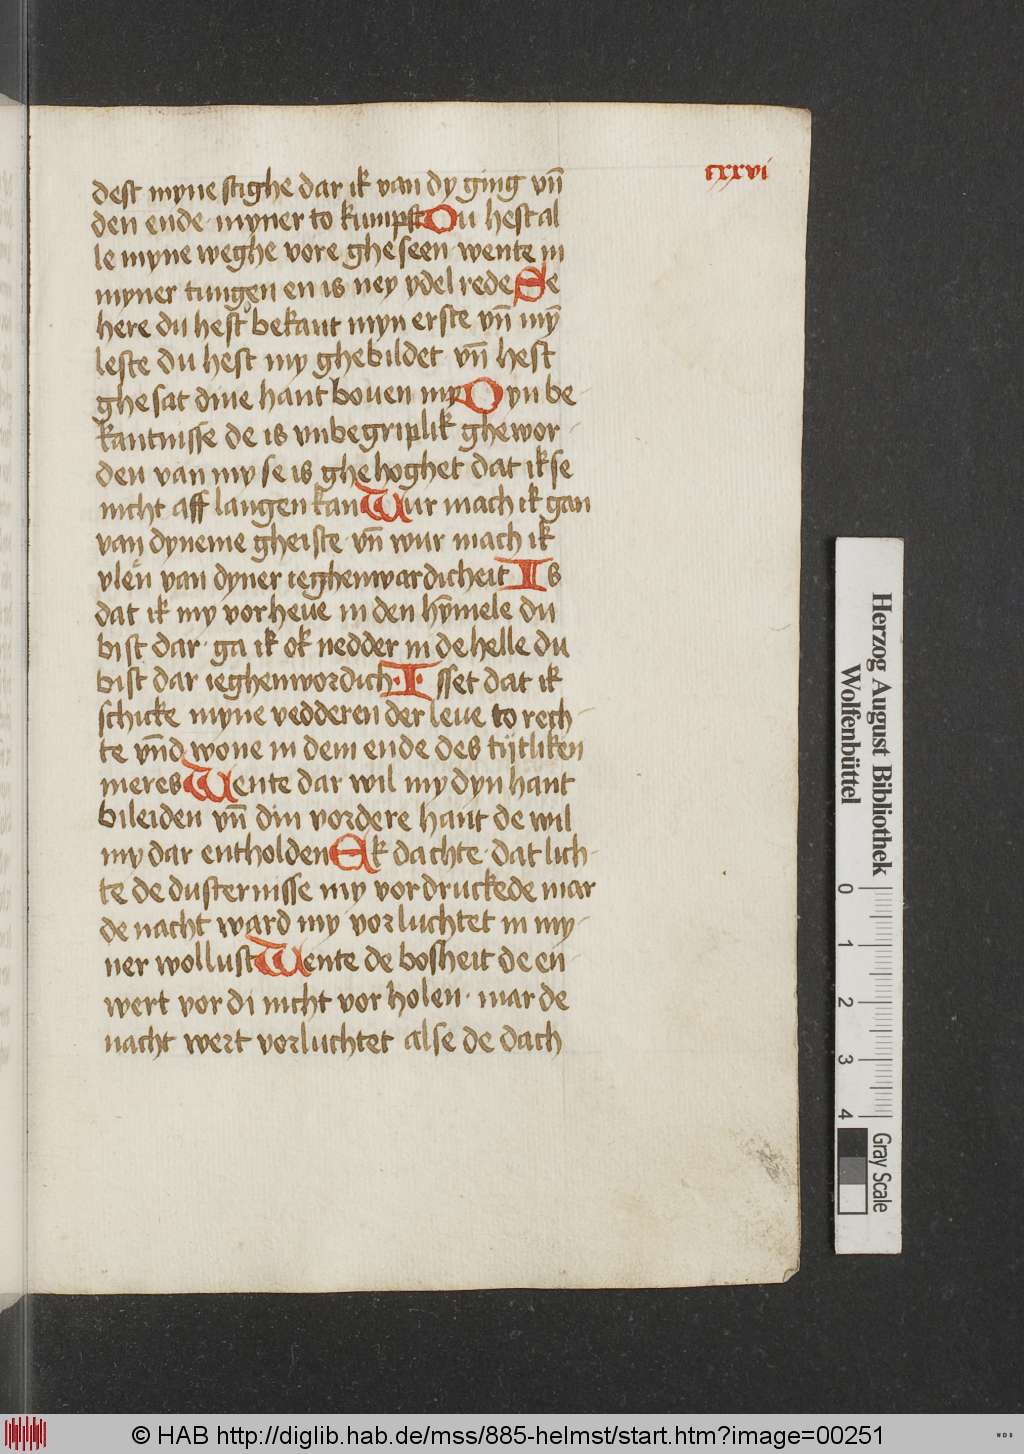 cxxvi
dest myne stighe dar ik van dy ging vn̄
den ende myner to kumpst Du hest al
le myne weghe vore gheseen wente in
myner tungen en is ney ydel rede Se
here du hest bekant myn erste vn̄ mȳ
leste du hest my ghebildet vn̄ hest
ghesat dine hant bouen my Dyn be-
kantnisse de is vnbegriplik ghewor-
den van my se is ghehoghet dat ik se
nicht aff langen kan Wur mach ik gan
van dyneme gheiste vn̄ wur mach ik
vlen van dyner ieghenwardicheit Is
dat ik my vorheue in den hȳmele du
bist dar ga ik ok nedder in de helle du
bist dar ieghenwordich Isset dat ik
schicke myne vedderen der leue to rech-
te vn̄d wone in dem ende des tijtliken
meres Wente dar wil my dyn hant
bileiden vn̄ din vordere hant de wil
my dar entholden Ek dachte dat lich-
te de dusternisse my vordruckede mar
de nacht ward my vorluchtet in my-
ner wollust Wente de bosheit de en-
wert vor di nicht vorholen mar de
nacht wert vorluchtet alse de dach
Herzog August Bibliothek
Wolfenbüttel
0 1 2 3 4
Gray Scale
© HAB http://diglib.hab.de/mss/885-helmst/start.htm?image=00251